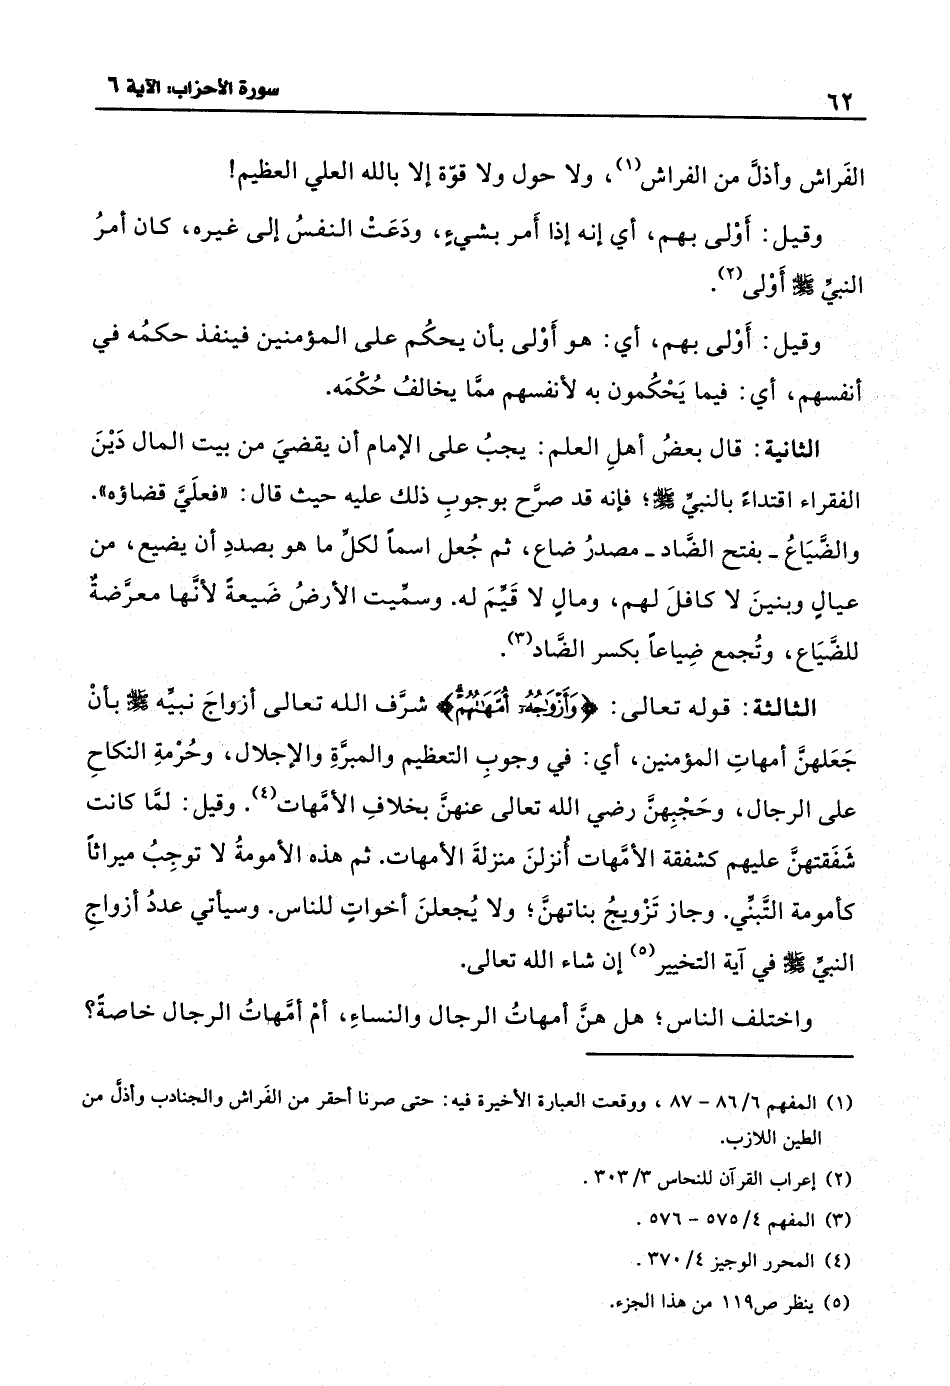 سورة الأحزاب: الآية ٦
٦٢
الفَراش وأذلَّ من الفراش(١)، ولا حول ولا قوّة إلا بالله العلي العظيم!
وقيل: أَوْلى بهم، أي إنه إذا أَمر بشيءٍ، ودَعَتْ النفسُ إلى غيره، كان أمرُ
النبيِّ ﷺ أَوْلى(٢).
وقيل: أَوْلى بهم، أي: هو أَوْلى بأن يحكُم على المؤمنين فينفذ حكمُه في
أنفسهم، أي: فيما يَحْكُمون به لأنفسهم ممَّا يخالفُ حُكْمَه.
الثانية: قال بعضُ أهلِ العلم: يجبُ على الإمام أن يقضيَ من بيت المال دَيْنَ
الفقراء اقتداءً بالنبيِّ ﷺ؛ فإنه قد صرَّح بوجوبِ ذلك عليه حيث قال: «فعلَيَّ قضاؤه».
والضَّيَاعُ ـ بفتح الضَّاد ـ مصدرُ ضاع، ثم جُعل اسماً لكلِّ ما هو بصددِ أن يضيع، من
عيالٍ وبنينَ لا كافلَ لهم، ومالٍ لا قَيِّمَ له. وسمِّيت الأرضُ ضَيعةً لأنَّها معرَّضةٌ
للضَّيَاع، وتُجمع ضِياعاً بكسر الضَّاد(٣).
الثالثة: قوله تعالى: ﴿وَأَزْوَاجُهُۥٓ أُمَّهَـٰتُهُمْ﴾ شرَّف الله تعالى أزواجَ نبيِّه ﷺ بأنْ
جَعَلهنَّ أمهاتِ المؤمنين، أي: في وجوبِ التعظيم والمبرَّةِ والإجلال، وحُرْمةِ النكاحِ
على الرجال، وحَجْبِهنَّ رضي الله تعالى عنهنَّ بخلافِ الأمَّهات(٤). وقيل: لمَّا كانت
شَفَقتهنَّ عليهم كشفقة الأمَّهات أُنزلنَ منزلةَ الأمهات. ثم هذه الأمومةُ لا توجِبُ ميراثاً
كأمومة التَّبنِّي. وجاز تَزْويجُ بناتهنَّ؛ ولا يُجعلنَ أخواتٍ للناس. وسيأتي عددُ أزواجِ
النبيِّ ﷺ في آية التخيير(٥) إن شاء الله تعالى.
واختلف الناس؛ هل هنَّ أمهاتُ الرجال والنساءِ، أمْ أمَّهاتُ الرجال خاصةً؟
(١) المفهم ٦/ ٨٦ - ٨٧ ، ووقعت العبارة الأخيرة فيه: حتى صرنا أحقر من الفَراش والجنادب وأذلَّ من
الطين اللازب.
(٢) إعراب القرآن للنحاس ٣/ ٣٠٣ .
(٣) المفهم ٤/ ٥٧٥ - ٥٧٦ .
(٤) المحرر الوجيز ٤/ ٣٧٠ .
(٥) ينظر ص١١٩ من هذا الجزء.